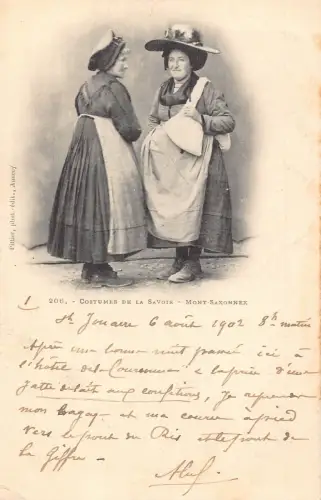 Pittier, phot.-édit., Annecy
1
206. - COSTUMES DE LA SAVOIE - MONT-SAXONNEX
St Jouaire 6 août 1902 8h matin
Après une bonne nuit passée ici à
l'hôtel des Couronnes & la prise d'une
jatte de lait aux confitures, je reprends
mon bagage et ma course à pied
vers le pont du Ris et le pont de
la Giffre -